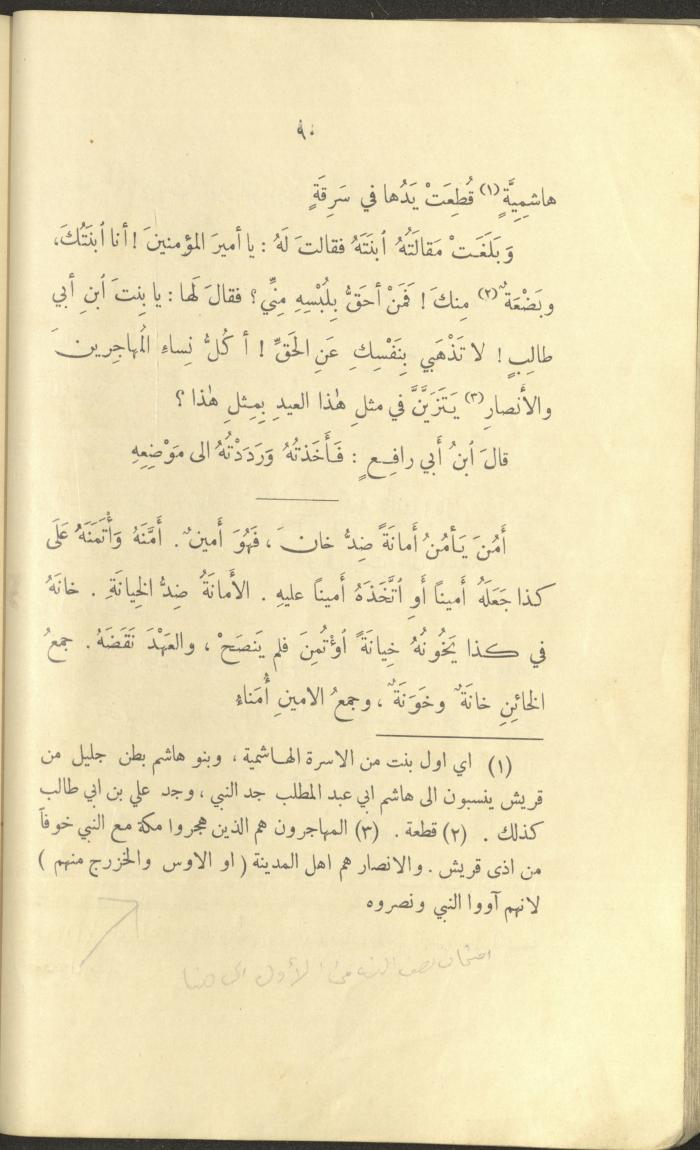 ٩٠
هاشِمِيَّةٍ (١) قُطِعَتْ يَدُها في سَرِقَةٍ
وَبَلَغَتْ مَقالَتُهُ ٱبنَتَهُ فقالتَ لَهُ : يا أميرَ المؤمنينَ ! أنا ٱبنَتُكَ،
وبَضْعَةٌ (٢) مِنكَ ! فَمَنْ أحَقُّ بِلُبْسِهِ مِنِّي ؟ فقالَ لَها : يا بِنتَ ٱبنِ أبي
طالِبٍ ! لا تَذْهَبي بِنَفْسِكِ عَنِ الحَقِّ ! أَكُلُّ نِساءِ المُهاجِرِينَ
والأَنصارِ (٣) يَتَزَيَّنَّ في مثلِ هٰذا العيدِ بِمِثلِ هٰذا ؟
قالَ ٱبنُ أَبي رافِعٍ : فَأَخَذتُهُ وَرَدَدْتُهُ الى مَوْضِعِهِ
أَمُنَ يَأمُنُ أَمانَةً ضِدُّ خانَ ، فَهُوَ أَمينٌ . أَمَّنَهُ وَأْتَمَنَهُ عَلَى
كذا جَعَلَهُ أَميناً أَوِ ٱتَّخَذَهُ أَميناً عليهِ . الأَمانَةُ ضِدُّ الخِيانَةِ . خانَهُ
في كذا يَخُونُهُ خِيانَةً ٱوْتُمِنَ فلم يَنصَحْ ، والعَهْدَ نَقَضَهُ . جمعُ
الخائِنِ خانَةٌ وخَوَنَةٌ ، وجمعُ الامينِ أُمَناءِ
(١) اي اول بنت من الاسرة الهاشمية ، وبنو هاشم بطن جليل من
قريش ينسبون الى هاشم ابي عبد المطلب جد النبي ، وجد علي بن ابي طالب
كذلك . (٢) قطعة . (٣) المهاجرون هم الذين هجروا مكة مع النبي خوفاً
من اذى قريش . والانصار هم اهل المدينة ( او الاوس والخزرج منهم )
لانهم آووا النبي ونصروه
امتحان نصف الأول الى هنا